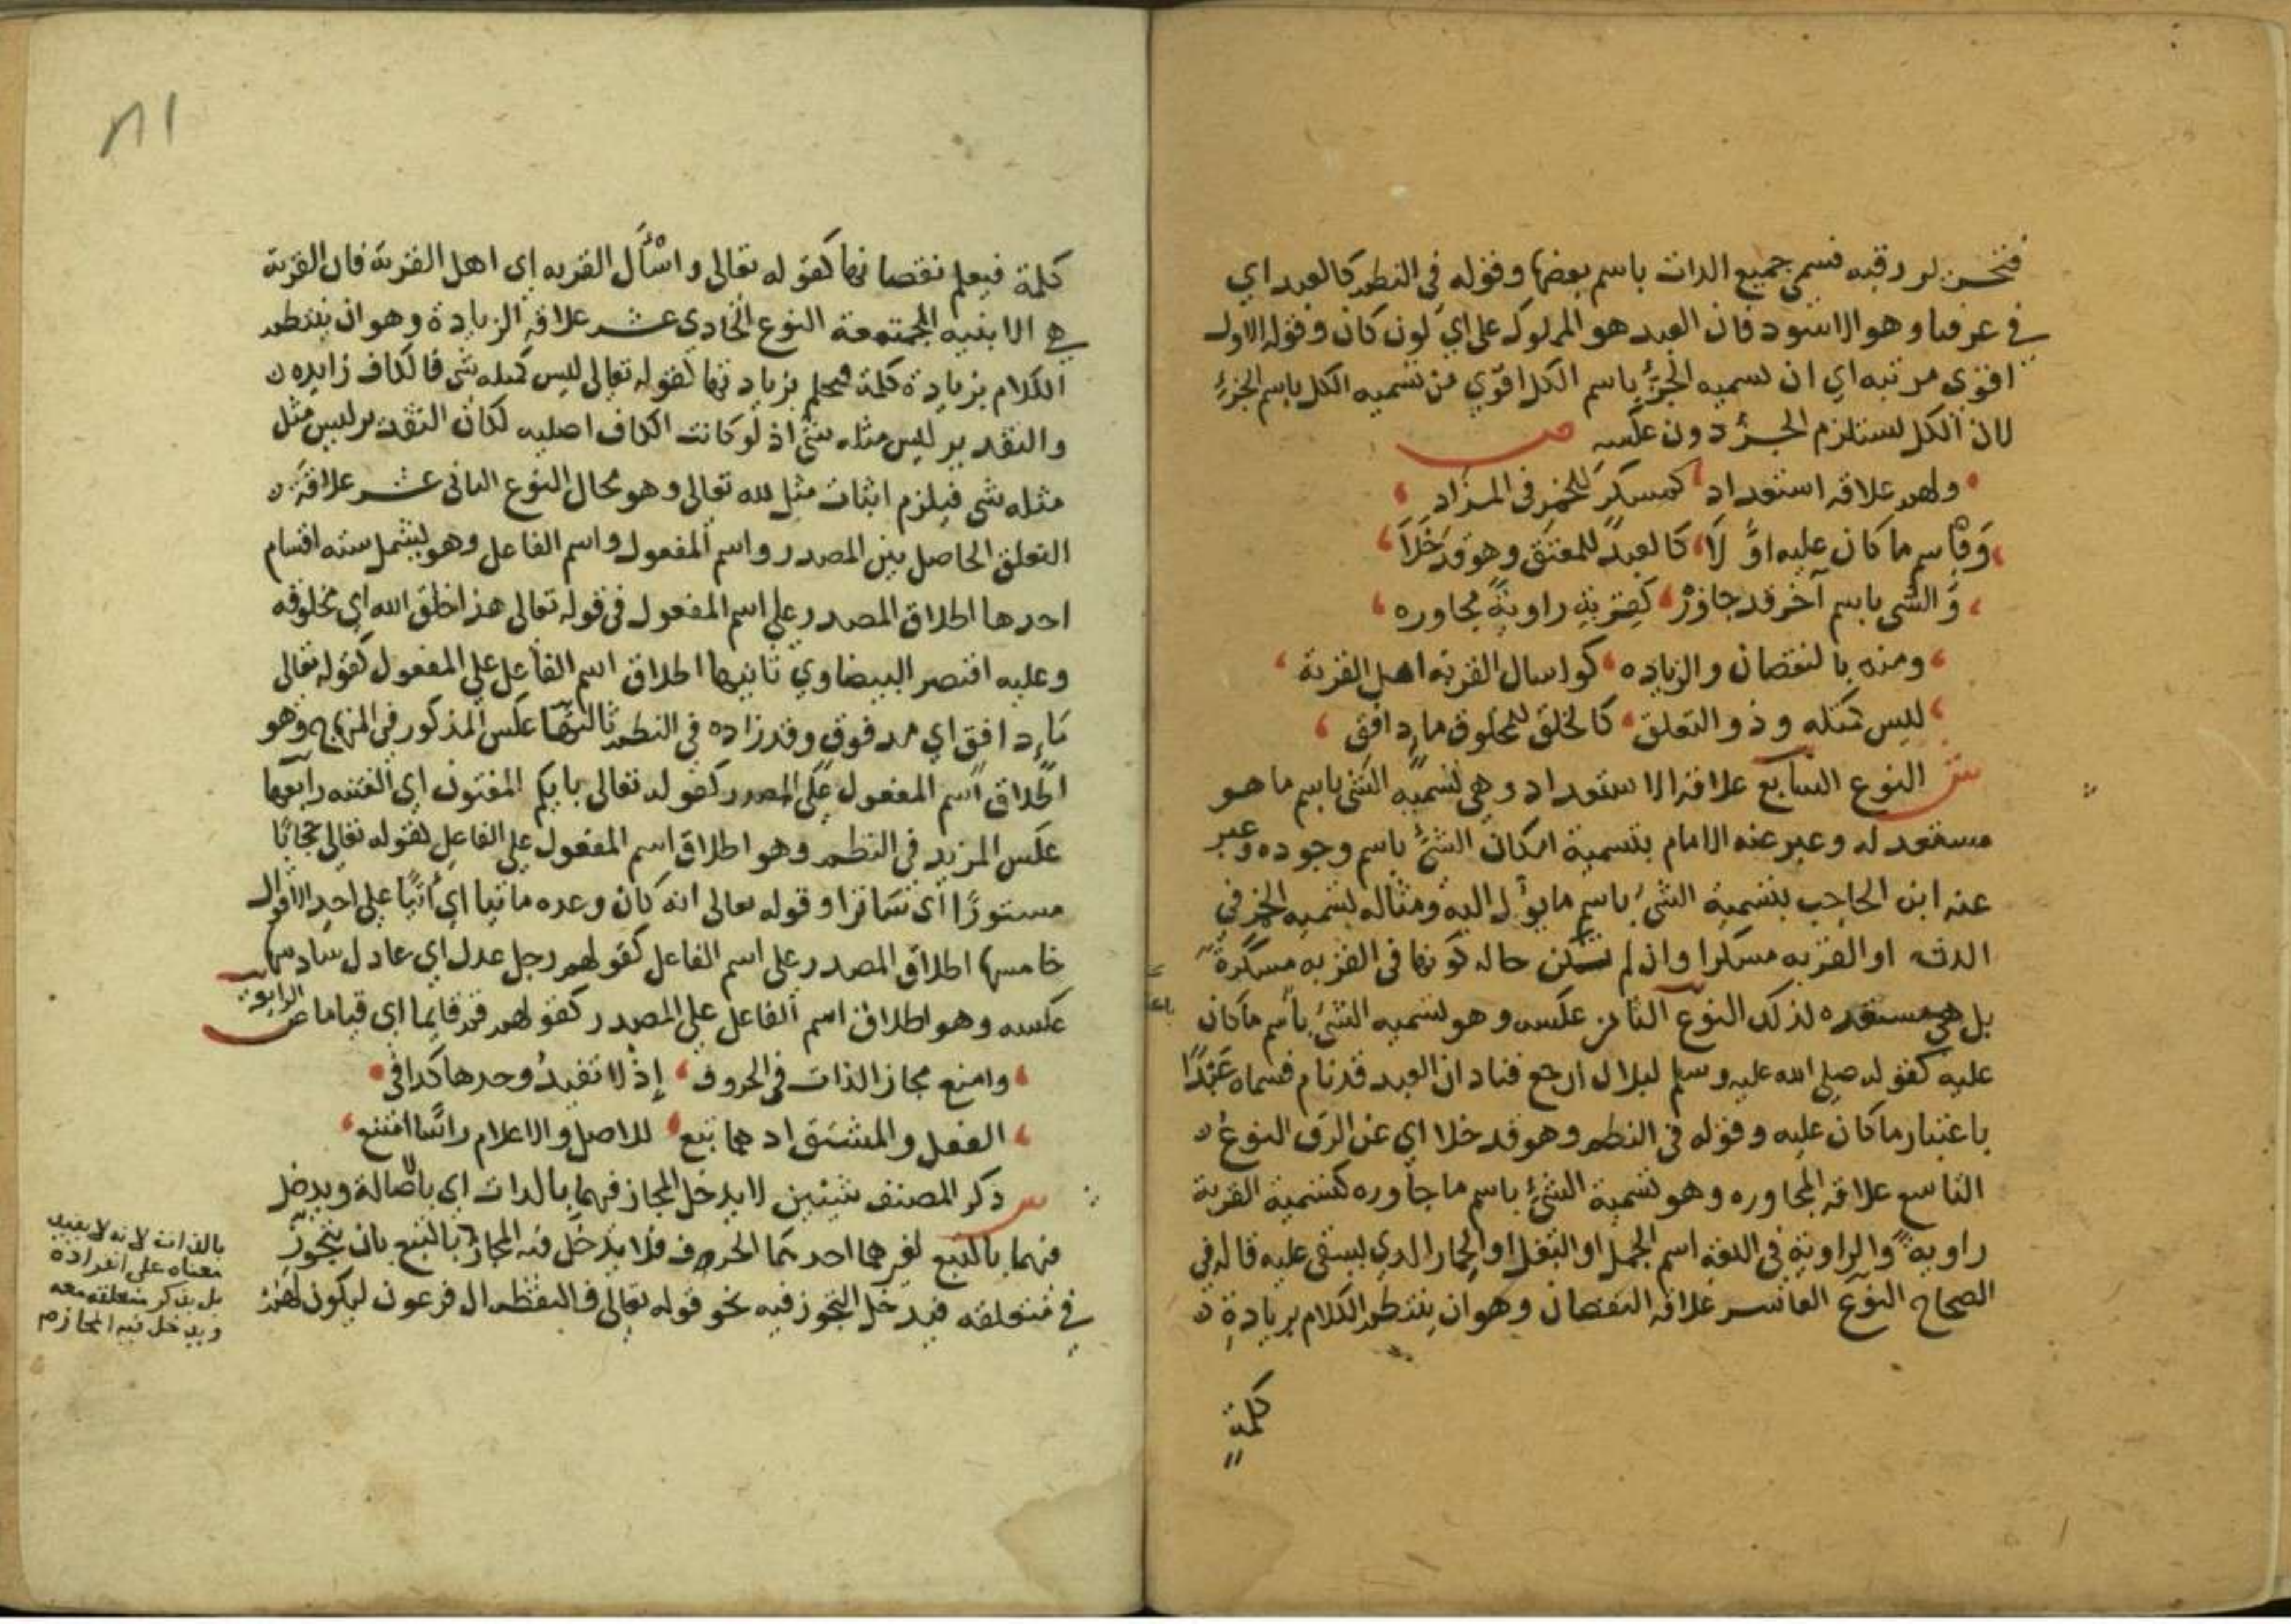 فتحرير رقبه فسمى جميع الذات باسم بعضها وقوله في النظم كالعبد اي
في عرفنا وهو الاسود فان العبد هو المملوك على اي لون كان وقوله الاول
اقوى مرتبه اي ان تسميه الجزء باسم الكل اقوي من تسميه الكل باسم الجزء
لان الكل يستلزم الجزء دون عكسه ص
ولهم علاقه استعداد كمسكر للخمر في المزاد
وقاسم ما كان عليه اوَّلَا كالعبد للمعتق وهو قد خلا
والشي باسم آخر قد جاوره كقربة راوية مجاوره
ومنه بالنقصان والزياده كواسال القرية اهل القرية
ليس كمثله وذو التعلق كالخلق للمخلوق ماء دافق
ش النوع السابع علاقة الاستعداد وهي تسمية الشئ باسم ما هو
مستعد له وعبر عنه الامام بتسمية امكان الشئ باسم وجوده وعبر
عنه ابن الحاجب بتسمية الشئ باسم ما يؤل اليه ومثاله تسميه الخمر في
الدن او القربه مسكرا وان لم تكن حاله كونها في القربه مسكرة
بل هي مستعده لذلك النوع الثامن عكسه وهو تسميه الشئ باسم ما كان
عليه كقوله صلى الله عليه وسلم لبلال ارجع فناد ان العبد قد نام فسماه عَبْدًا
باعتبار ما كان عليه وقوله في النظم وهو قد خلا اي عن الرق النوع
التاسع علاقه المجاوره وهو تسمية الشئ باسم ما جاوره كتسمية القربة
راوية والراوية في اللغه اسم الجمل او البغل او الحمار الذي يستقى عليه قاله في
الصحاح النوع العاشر علاقه النقصان وهو ان ينتظم الكلام بزيادة
كلمة
كلمة فيعلم نقصانها كقوله تعالى واسْأَل القريه اي اهل القرية فان القرية
هي الابنيه المجتمعة النوع الحادي عشر علاقة الزيادة وهو ان ينتظم
الكلام بزيادة كلمة فيحكم بزيادتها كقوله تعالى ليس كمثله شي فالكاف زايده
والتقدير ليس مثله شئ اذ لو كانت الكاف اصليه لكان التقدير ليس مثل
مثله شي فيلزم اثبات مثل لله تعالى وهو محال النوع الثاني عشر علاقة
التعلق الحاصل بين المصدر واسم المفعول واسم الفاعل وهو يشمل سته اقسام
احدها اطلاق المصدر على اسم المفعول في قوله تعالى هذا خلق الله اي مخلوقه
وعليه اقتصر البيضاوي ثانيها اطلاق اسم الفاعل على المفعول كقوله تعالى
ماء دافق اي مدفوق وقد زاده في النظم ثالثها عكس المذكور في المنهاج وهو
اطلاق اسم المفعول على المصدر كقوله تعالى بايكم المفتون اي الفتنه رابعها
عكس المزيد في النظم وهو اطلاق اسم المفعول على الفاعل كقوله تعالى حجابًا
مستورًا اي ساترا وقوله تعالى انه كان وعده ماتيا اي اتيًا على احد الاقوال
خامسها اطلاق المصدر على اسم الفاعل كقولهم رجل عدل اي عادل سادسها
عكسه وهو اطلاق اسم الفاعل على المصدر كقولهم قم قايما اي قياما
وامنع مجاز الذات في الحروف إذ لا تفيد وحدها كذا في
الفعل والمشتق اذ هما تبع للاصل والاعلام راسًا امتنع
ش ذكر المصنف شيئين لا يدخل المجاز فيهما بالذات اي باصالة ويدخل
فيهما بالتبع لغيرهما احدهما الحروف فلا يدخل فيه المجاز بالتبع بان يتجوز
في متعلقه فيدخل التجوز فيه نحو قوله تعالى فالتقطه ال فرعون ليكون لهم
بالذات لانه لا يفيد
معناه على انفراده
بل يذكر متعلقه معه
ويدخل فيه المجاز